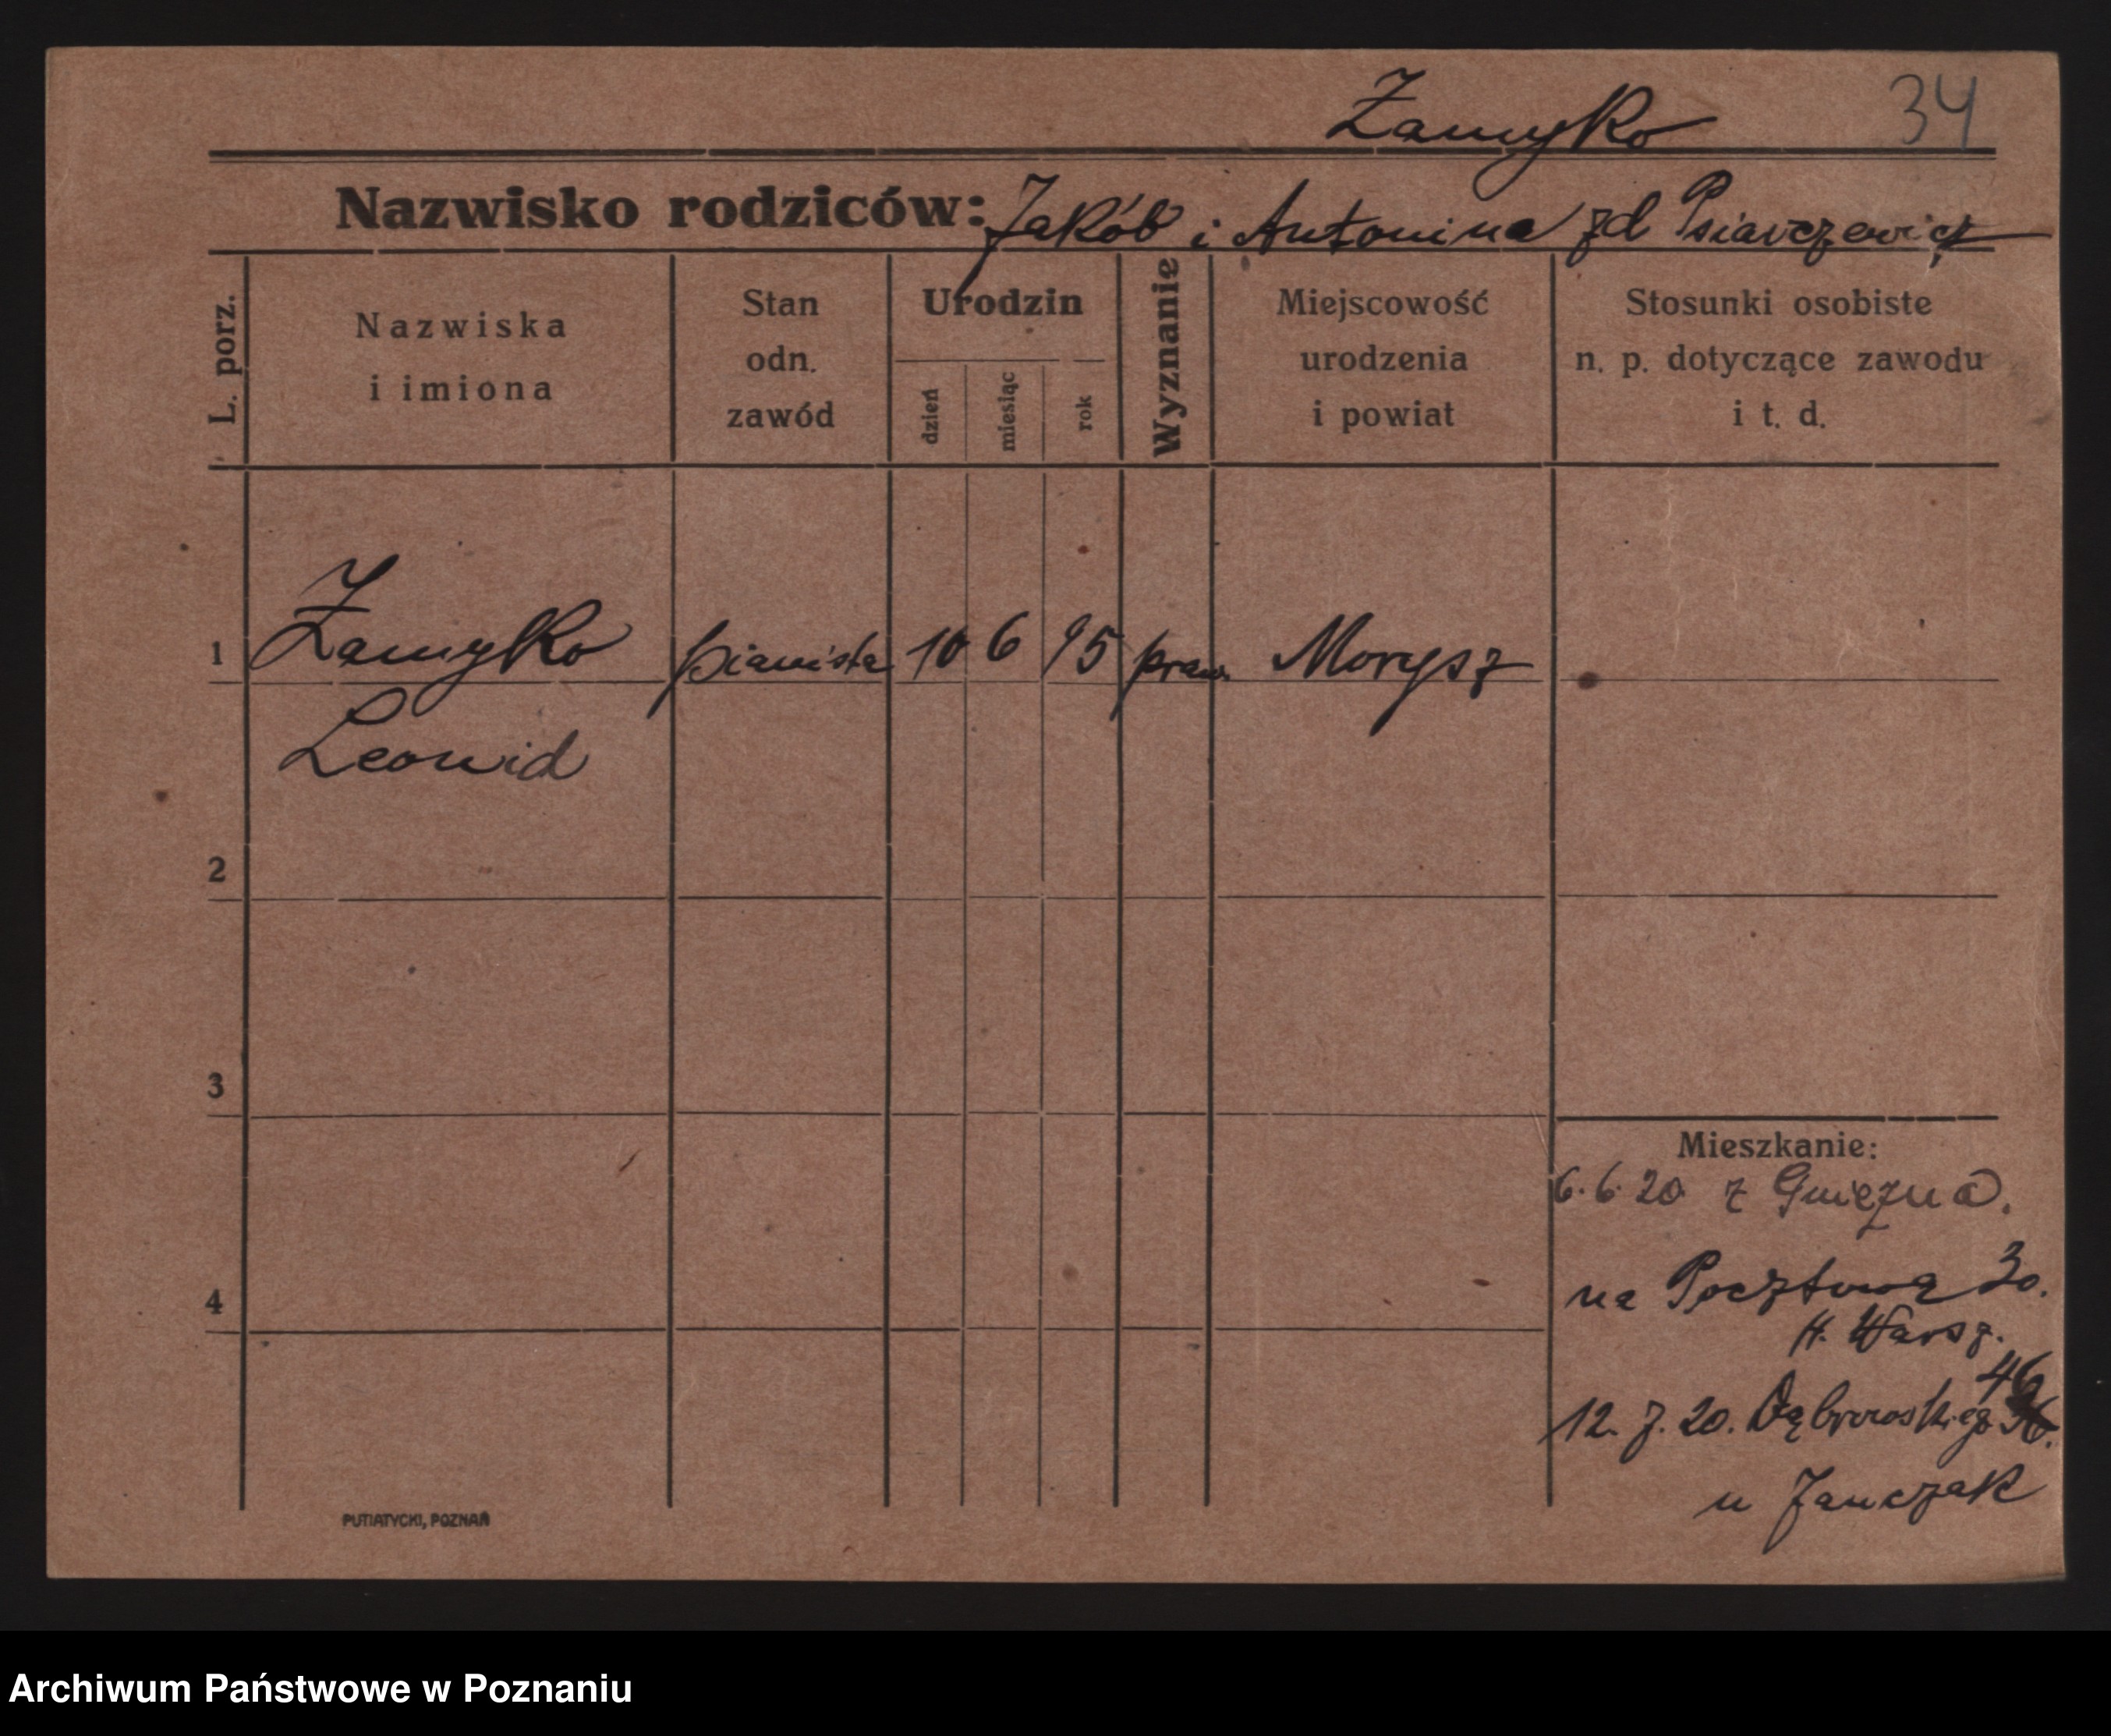 Zamyko 34
Nazwisko rodziców: Jakób i Antonina zd Psiarczewicz
L. porz.
Nazwiska
i imiona
Stan
odn.
zawód
Urodzin
dzień
miesiąc
rok
Wyznanie
Miejscowość
urodzenia
i powiat
Stosunki osobiste
n. p. dotyczące zawodu
i t. d.
1 Zamyko pianista 10 6 95 praw. Morysz
Leonid
2
3
4
Mieszkanie:
6.6.20 z Gniezna.
na Pocztową 30.
H. Warsz.
46
12.7.20. Dąbrowskiego
u Janczak
PUTIATYCKI, POZNAŃ
Archiwum Państwowe w Poznaniu